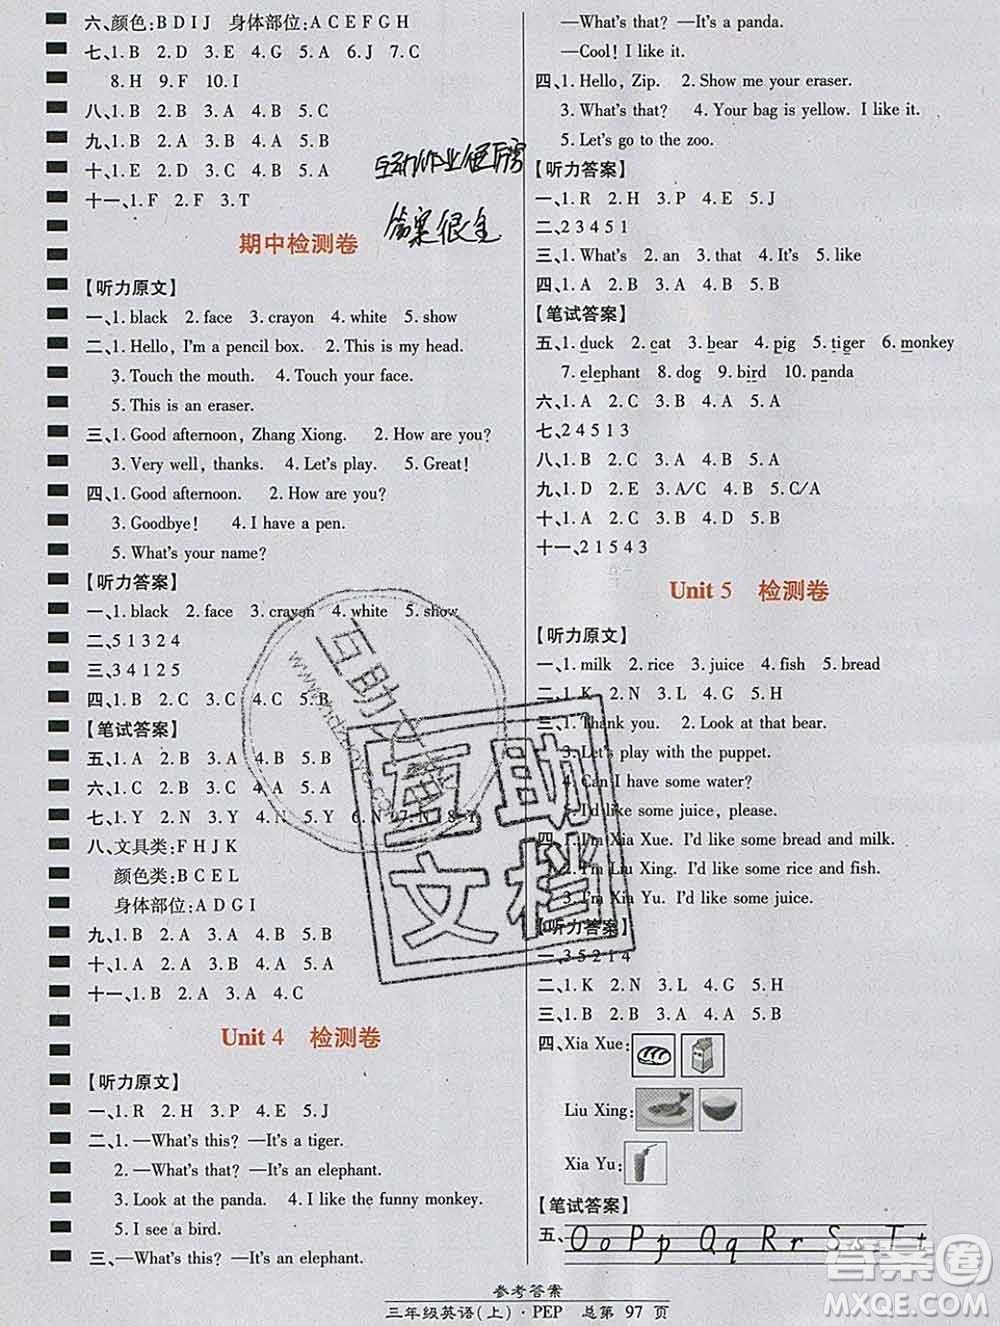 六、颜色:B D I J 身体部位:A C E F G H
七、1. B 2. D 3. E 4. G 5. A 6. J 7. C
8. H 9. F 10. I
八、1. B 2. B 3. A 4. B 5. C
九、1. B 2. B 3. A 4. B 5. B
十、1. E 2. D 3. A 4. C 5. B
十一、1. F 2. F 3. T
期中检测卷
【听力原文】
一、1. black 2. face 3. crayon 4. white 5. show
二、1. Hello, I'm a pencil box. 2. This is my head.
3. Touch the mouth. 4. Touch your face.
5. This is an eraser.
三、1. Good afternoon, Zhang Xiong. 2. How are you?
3. Very well, thanks. 4. Let's play. 5. Great!
四、1. Good afternoon. 2. How are you?
3. Goodbye! 4. I have a pen.
5. What's your name?
【听力答案】
一、1. black 2. face 3. crayon 4. white 5. show
二、5 1 3 2 4
三、3 4 1 2 5
四、1. B 2. C 3. C 4. C 5. B
【笔试答案】
五、1. A 2. B 3. A 4. B 5. B
六、1. C 2. B 3. A 4. B 5. A
七、1. Y 2. Y 3. Y 4. N 5. Y 6. N 7. N 8. Y
八、文具类:F H J K
颜色类:B C E L
身体部位:A D G I
九、1. B 2. A 3. A 4. B 5. B
十、1. B 2. A 3. B 4. A 5. B
十一、1. B 2. A 3. A 4. C
Unit 4 检测卷
【听力原文】
一、1. R 2. H 3. P 4. E 5. J
二、1. —What's this? —It's a tiger.
2. —What's that? —It's an elephant.
3. Look at the panda. 4. I like the funny monkey.
5. I see a bird.
三、—What's this? —It's an elephant.
—What's that? —It's a panda.
—Cool! I like it.
四、1. Hello, Zip. 2. Show me your eraser.
3. What's that? 4. Your bag is yellow. I like it.
5. Let's go to the zoo.
【听力答案】
一、1. R 2. H 3. P 4. E 5. J
二、2 3 4 5 1
三、1. What's 2. an 3. that 4. It's 5. like
四、1. A 2. B 3. A 4. B 5. B
【笔试答案】
五、1. duck 2. cat 3. bear 4. pig 5. tiger 6. monkey
7. elephant 8. dog 9. bird 10. panda
六、1. A 2. C 3. C 4. A 5. A
七、2 4 5 1 3
八、1. B 2. A 3. C 4. B 5. C
九、1. D 2. E 3. A/C 4. B 5. C/A
十、1. A 2. C 3. B 4. A 5. B
十一、2 1 5 4 3
Unit 5 检测卷
【听力原文】
一、1. milk 2. rice 3. juice 4. fish 5. bread
二、1. K 2. N 3. L 4. G 5. H
三、1. Thank you. 2. Look at that bear.
3. Let's play with the puppet.
4. Can I have some water?
5. I'd like some juice, please.
四、1. I'm Xia Xue. I'd like some bread and milk.
2. I'm Liu Xing. I'd like some rice and fish.
3. I'm Xia Yu. I'd like some juice.
【听力答案】
一、3 5 2 1 4
二、1. K 2. N 3. L 4. G 5. H
三、1. B 2. B 3. A 4. B 5. B
四、Xia Xue:
Liu Xing:
Xia Yu:
【笔试答案】
五、Oo Pp Qq Rr Ss Tt
参考答案
三年级英语(上)·PEP 总第 97 页
答案很全
互助文档
答案圈
MXQE.COM